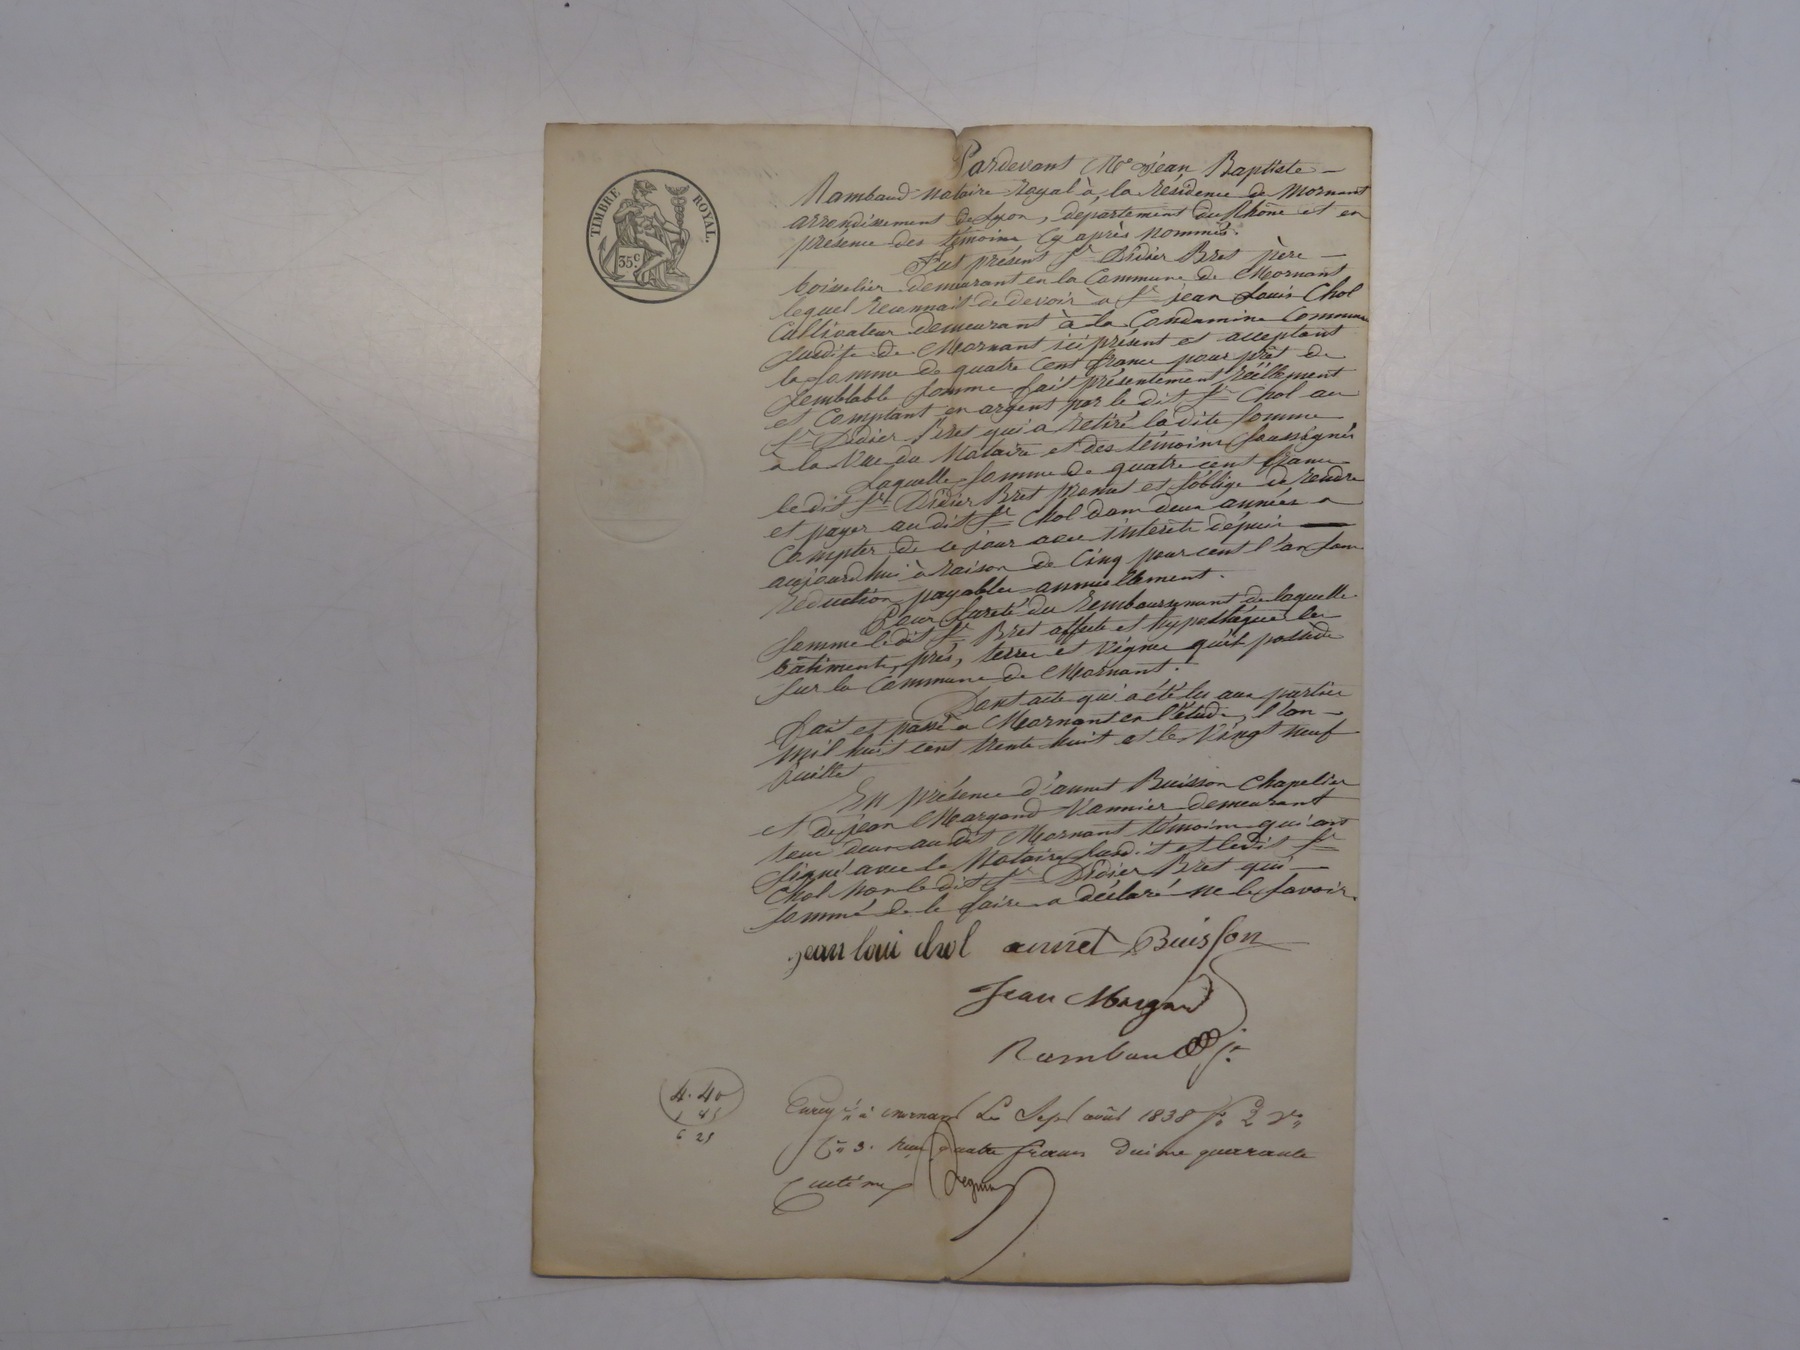 TIMBRE ROYAL.
35c.
Pardevant Me Jean Baptiste
Rambaud notaire royal à la résidence de Mornant
arrondissement de Lyon, département du Rhône et en
présence des témoins cy après nommés.
Fut présent Sr Didier Bret père
boisselier demeurant en la Commune de Mornant
lequel reconnait de devoir à Sr jean Louis Chol
Cultivateur demeurant à la Condamine Commune
susdite de Mornant ici présent et acceptant
la somme de quatre cent francs pour prêt de
semblable somme fait présentement réellement
et Comptant en argent par le dit Sr Chol au
Sr Didier Bret qui a retiré la dite somme
à la vue du Notaire et des témoins soussignés
Laquelle somme de quatre cent francs
le dit Sr Didier Bret promet et s'oblige de rendre
et payer au dit Sr Chol dans deux années a
Compter de ce jour avec intérêts depuis
aujourd'hui à raison de Cinq pour cent l'an sans
réduction payables annuellement.
Pour sureté du remboursement de laquelle
somme le dit Sr Bret affecte et hypothéque les
bâtiments, prés, terres et vignes qu'il possède
sur la Commune de Mornant.
Dont acte qui a été lu aux parties
fait et passé a Mornant en l'étude, l'an
mil huit cent trente huit et le vingt neuf
juillet
En présence d'annet Buisson Chapelier
et de jean Margand Vannier demeurant
tous deux au dit Mornant témoins qui ont
signé avec le Notaire susdit et ledit Sr
Chol non le dit Sr Didier Bret qui
sommé de le faire a déclaré ne le savoir.
jean loui chol annet Buisson
Jean Margand
Rambaud
4. 40
1 85
6 25
Enregé à Mornant Le Sept août 1838 fo 2 vo
Ce 3. Reçu quatre francs dixime quarante
Centimes